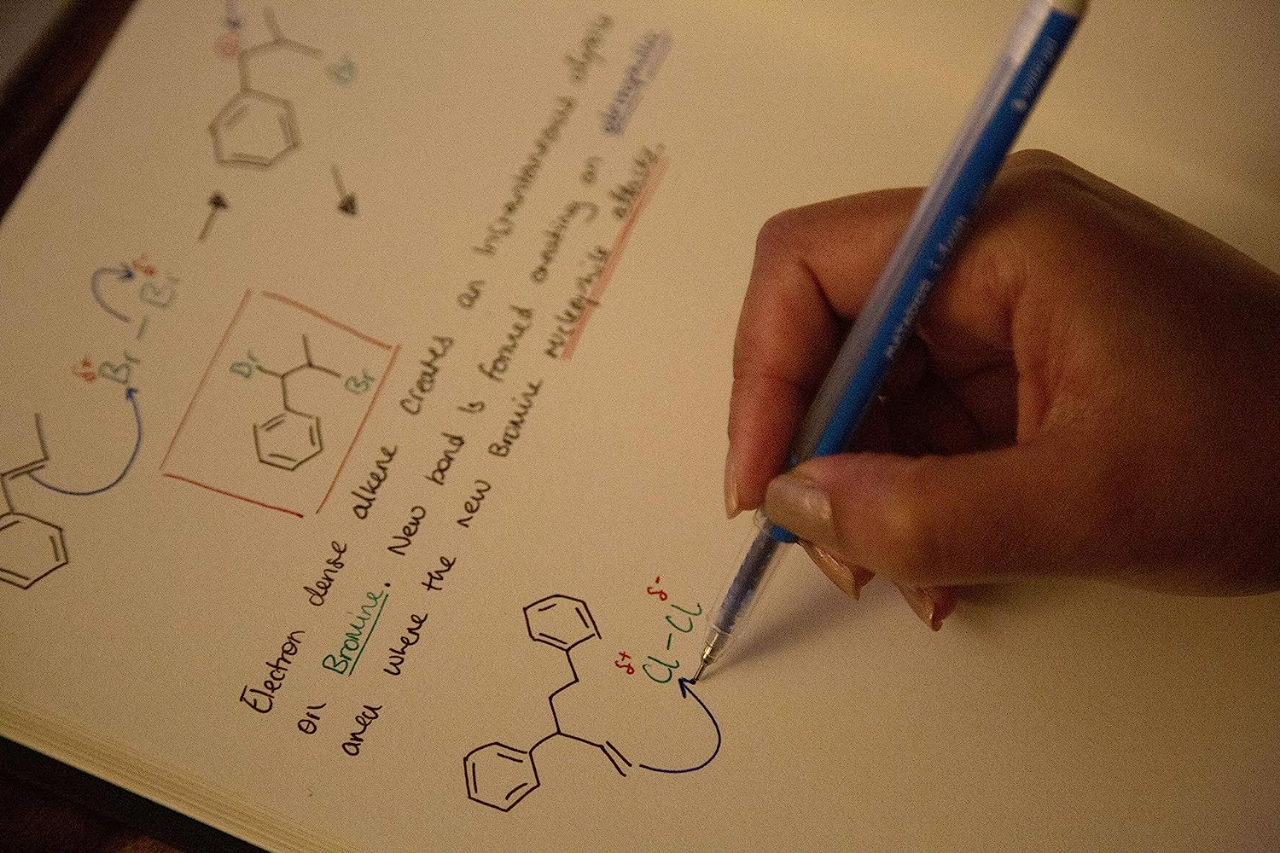 Br
δ-
δ+
Br – Br
Br
Br
Electron dense alkene creates an instantaneous dipole
on Bromine. New bond is formed creating an electrophilic
area where the new Bromine nucleophile attacks.
δ-
δ+
Cl – Cl